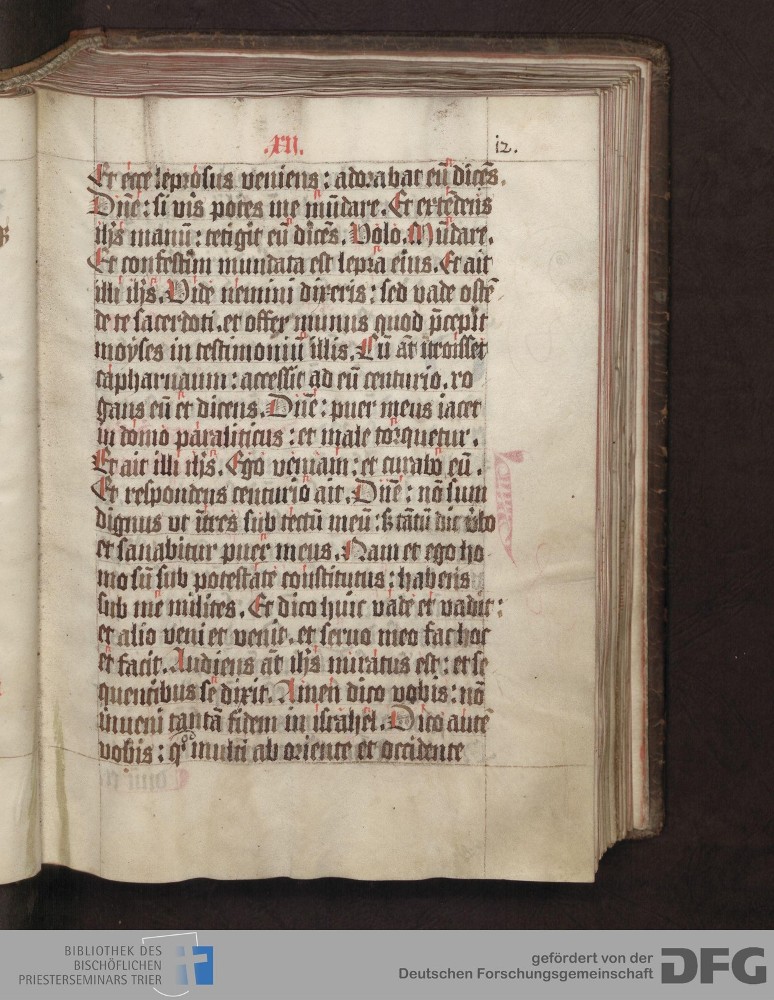 .XII. 12.
Et ecce leprosus veniens : adorabat eū dicēs.
Dn̄e : si vis potes me mūdare. Et extēdens
ih̄s manū : tetigit eū dicēs. Volo. Mūdare.
Et confestim mundata est lepra eius. Et ait
illi ih̄s. Vide nemini dixeris : sed vade ostē
de te sacerdoti. et offer munus quod p̄cepit
moyses in testimoniū illis. Cū āt ītroisset
capharnaum : accessit ad eū centurio. ro
gans eū et dicens. Dn̄e : puer meus iacet
in domo paraliticus : et male torquetur.
Et ait illi ih̄s. Ego veniam : et curabo eū.
Et respondens centurio ait. Dn̄e : nō sum
dignus vt ītres sub tectū meū : sʒ tātū dic v̄bo
et sanabitur puer meus. Nam et ego ho
mo sū sub potestate constitutus : habens
sub me milites. Et dico huic vade et vadit :
et alio veni et venit. et seruo meo fac hoc
et facit. Audiens āt ih̄s miratus est : et se
quentibus se dixit. Amen dico vobis : nō
inueni tantā fidem in israhel. Dico autē
vobis : qͦ multi ab oriente et occidente
BIBLIOTHEK DES
BISCHÖFLICHEN
PRIESTERSEMINARS TRIER
gefördert von der
Deutschen Forschungsgemeinschaft DFG